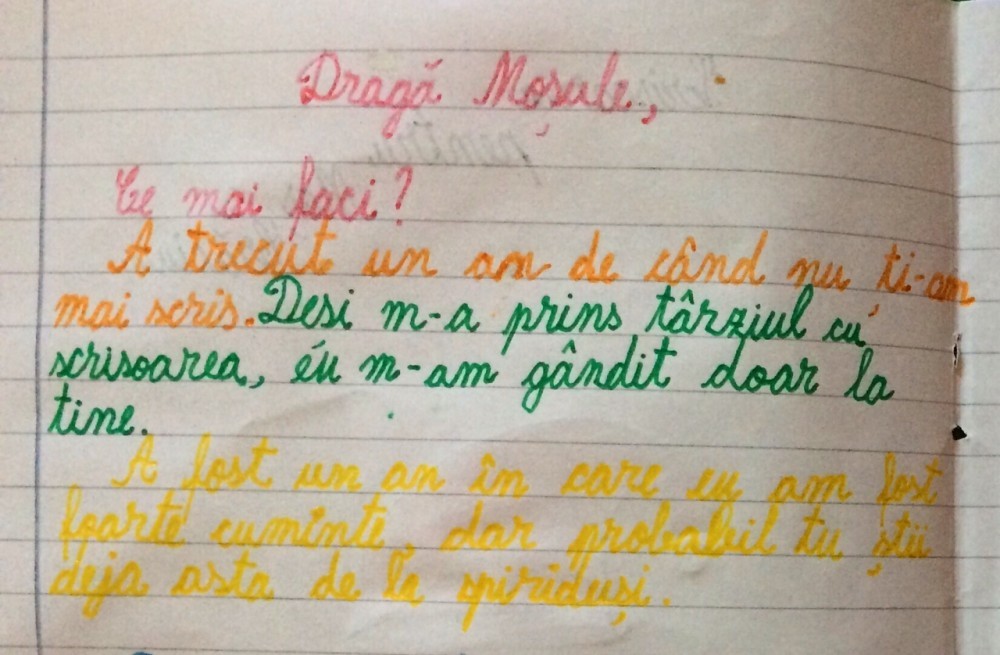 Dragă Moșule,
Ce mai faci?
A trecut un an de când nu ți-am
mai scris. Desi m-a prins târziul cu
scrisoarea, eu m-am gândit doar la
tine.
A fost un an în care eu am fost
foarte cuminte, dar probabil tu știi
deja asta de la spiriduși.